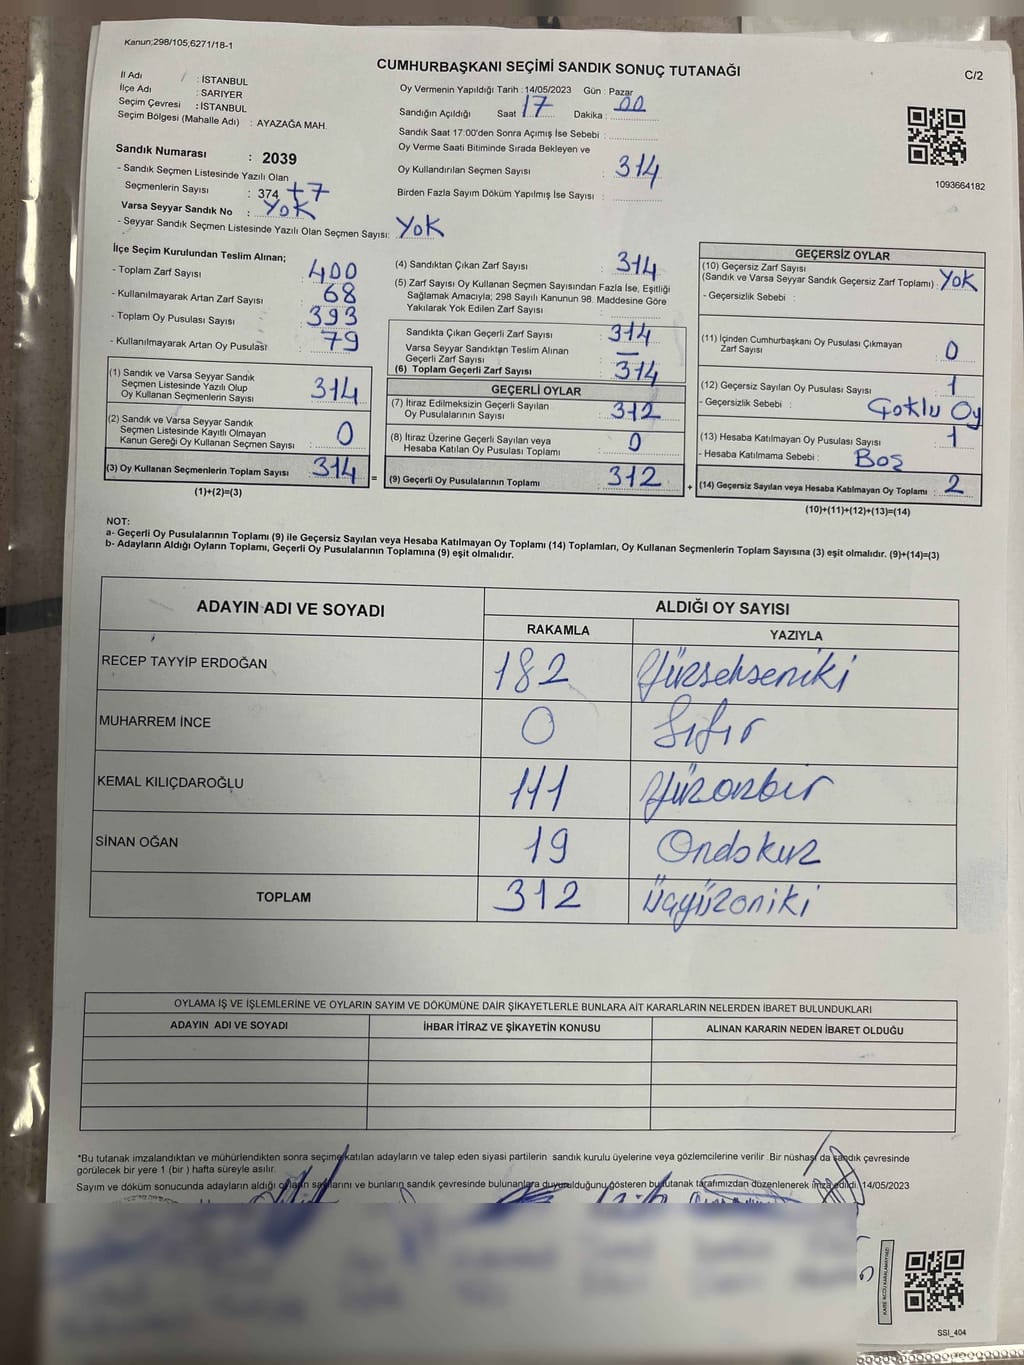 Kanun;298/105,6271/18-1
CUMHURBAŞKANI SEÇİMİ SANDIK SONUÇ TUTANAĞI
C/2
İl Adı : İSTANBUL
İlçe Adı : SARIYER
Seçim Çevresi : İSTANBUL
Seçim Bölgesi (Mahalle Adı) : AYAZAĞA MAH.
Sandık Numarası : 2039
- Sandık Seçmen Listesinde Yazılı Olan
Seçmenlerin Sayısı : 374 +7
Varsa Seyyar Sandık No : YOK
- Seyyar Sandık Seçmen Listesinde Yazılı Olan Seçmen Sayısı: YOK
Oy Vermenin Yapıldığı Tarih : 14/05/2023 Gün : Pazar
Sandığın Açıldığı Saat 17 Dakika : 00
Sandık Saat 17:00'den Sonra Açımış İse Sebebi :
Oy Verme Saati Bitiminde Sırada Bekleyen ve
Oy Kullandırılan Seçmen Sayısı : 314
Birden Fazla Sayım Döküm Yapılmış İse Sayısı :
1093664182
İlçe Seçim Kurulundan Teslim Alınan;
- Toplam Zarf Sayısı : 400
- Kullanılmayarak Artan Zarf Sayısı : 68
- Toplam Oy Pusulası Sayısı : 393
- Kullanılmayarak Artan Oy Pusulası : 79
(1) Sandık ve Varsa Seyyar Sandık
Seçmen Listesinde Yazılı Olup
Oy Kullanan Seçmenlerin Sayısı : 314
(2) Sandık ve Varsa Seyyar Sandık
Seçmen Listesinde Kayıtlı Olmayan
Kanun Gereği Oy Kullanan Seçmen Sayısı : 0
(3) Oy Kullanan Seçmenlerin Toplam Sayısı : 314
(1)+(2)=(3)
(4) Sandıktan Çıkan Zarf Sayısı : 314
(5) Zarf Sayısı Oy Kullanan Seçmen Sayısından Fazla İse, Eşitliği
Sağlamak Amacıyla; 298 Sayılı Kanunun 98. Maddesine Göre
Yakılarak Yok Edilen Zarf Sayısı :
Sandıkta Çıkan Geçerli Zarf Sayısı : 314
Varsa Seyyar Sandıktan Teslim Alınan
Geçerli Zarf Sayısı : —
(6) Toplam Geçerli Zarf Sayısı : 314
GEÇERLİ OYLAR
(7) İtiraz Edilmeksizin Geçerli Sayılan
Oy Pusulalarının Sayısı : 312
(8) İtiraz Üzerine Geçerli Sayılan veya
Hesaba Katılan Oy Pusulası Toplamı : 0
= (9) Geçerli Oy Pusulalarının Toplamı : 312
GEÇERSİZ OYLAR
(10) Geçersiz Zarf Sayısı
(Sandık ve Varsa Seyyar Sandık Geçersiz Zarf Toplamı) : YOK
- Geçersizlik Sebebi :
(11) İçinden Cumhurbaşkanı Oy Pusulası Çıkmayan
Zarf Sayısı : 0
(12) Geçersiz Sayılan Oy Pusulası Sayısı : 1
- Geçersizlik Sebebi : Çoklu Oy
(13) Hesaba Katılmayan Oy Pusulası Sayısı : 1
- Hesaba Katılmama Sebebi : Boş
+ (14) Geçersiz Sayılan veya Hesaba Katılmayan Oy Toplamı : 2
(10)+(11)+(12)+(13)=(14)
NOT:
a- Geçerli Oy Pusulalarının Toplamı (9) ile Geçersiz Sayılan veya Hesaba Katılmayan Oy Toplamı (14) Toplamları, Oy Kullanan Seçmenlerin Toplam Sayısına (3) eşit olmalıdır. (9)+(14)=(3)
b- Adayların Aldığı Oyların Toplamı, Geçerli Oy Pusulalarının Toplamına (9) eşit olmalıdır.
ADAYIN ADI VE SOYADI
ALDIĞI OY SAYISI
RAKAMLA YAZIYLA
RECEP TAYYİP ERDOĞAN 182 Yüzsekseniki
MUHARREM İNCE 0 Sıfır
KEMAL KILIÇDAROĞLU 111 Yüzonbir
SİNAN OĞAN 19 Ondokuz
TOPLAM 312 üçyüzoniki
OYLAMA İŞ VE İŞLEMLERİNE VE OYLARIN SAYIM VE DÖKÜMÜNE DAİR ŞİKAYETLERLE BUNLARA AİT KARARLARIN NELERDEN İBARET BULUNDUKLARI
ADAYIN ADI VE SOYADI İHBAR İTİRAZ VE ŞİKAYETİN KONUSU ALINAN KARARIN NEDEN İBARET OLDUĞU
*Bu tutanak imzalandıktan ve mühürlendikten sonra seçime katılan adayların ve talep eden siyasi partilerin sandık kurulu üyelerine veya gözlemcilerine verilir. Bir nüshası da sandık çevresinde
görülecek bir yere 1 (bir) hafta süreyle asılır.
Sayım ve döküm sonucunda adayların aldığı oyların sayılarını ve bunların sandık çevresinde bulunanlara duyurulduğunu gösteren bu tutanak tarafımızdan düzenlenerek imza edildi. 14/05/2023
SSI_404